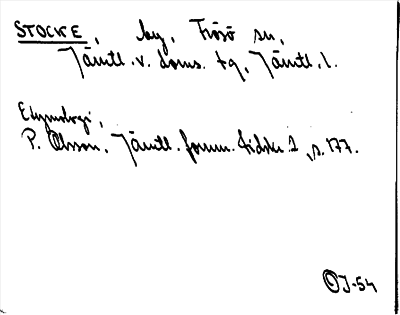 STOCKE, by, Frösö sn,
Jämtl. v. doms. tg, Jämtl. l.
Etymologi,
P. Olsson, Jämtl. fornm. tidskr. 1, s. 177.
OJ-54